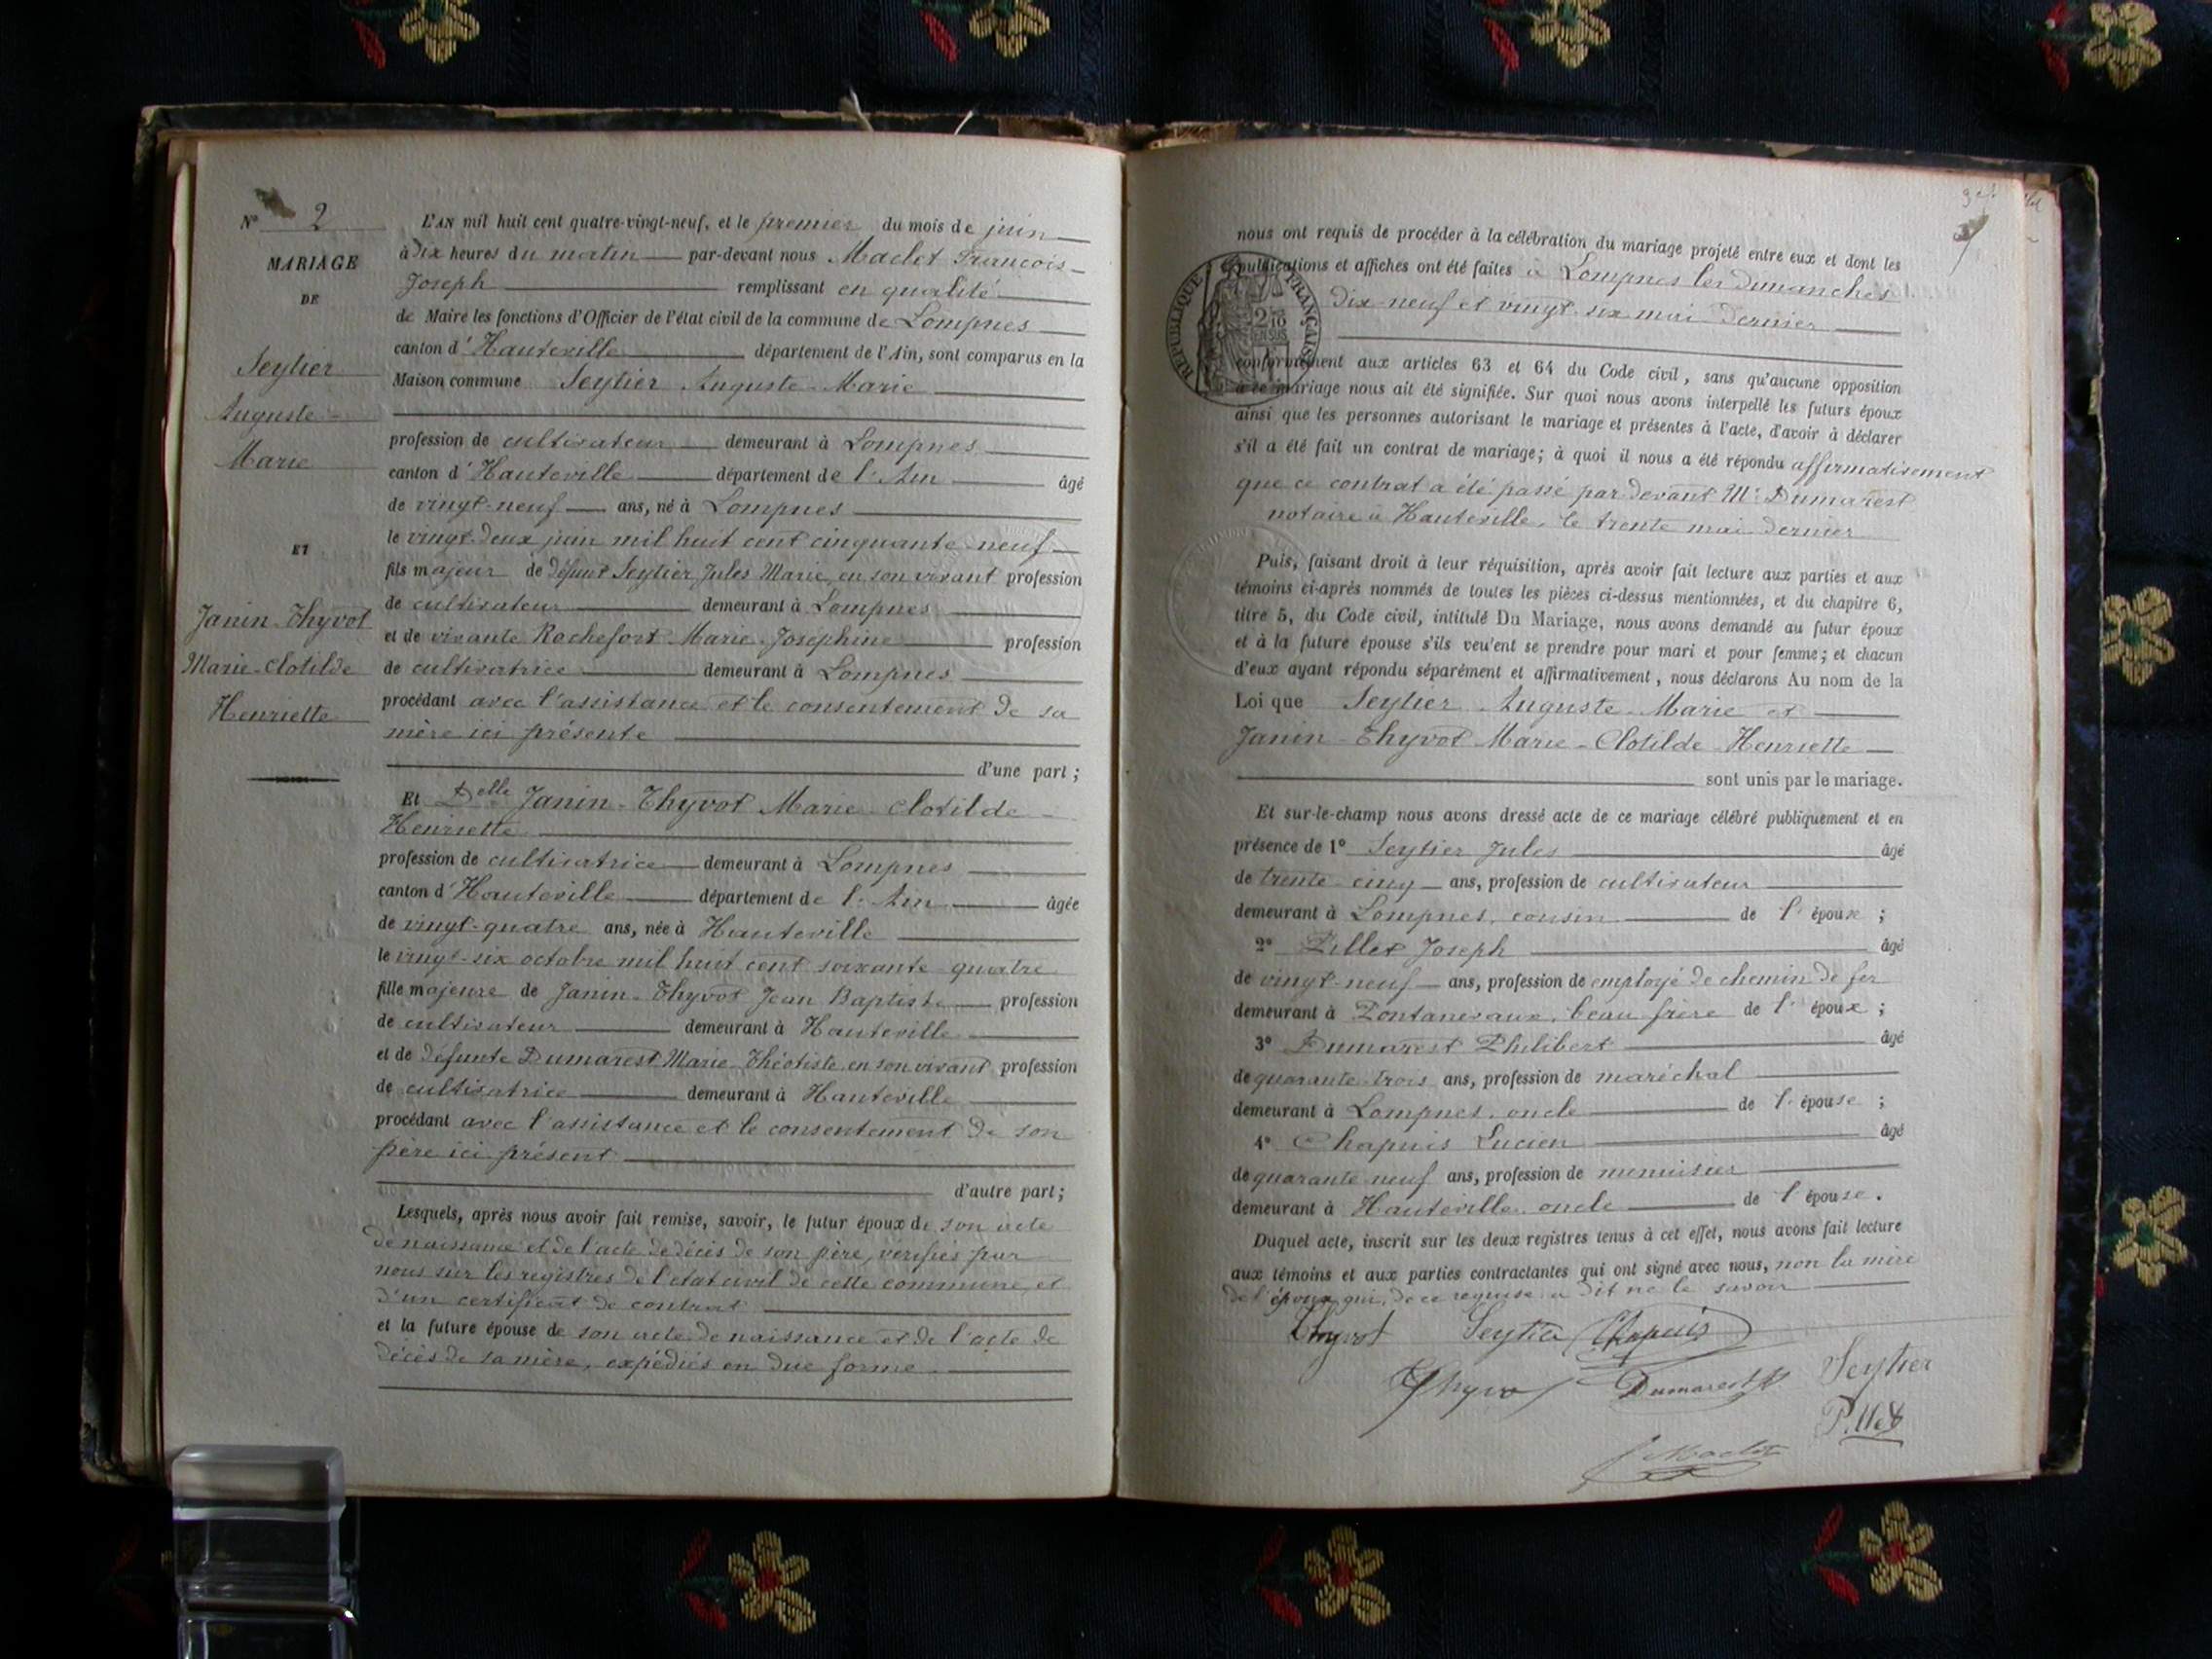 N° 2
MARIAGE
DE
Seytier
Auguste-
Marie
ET
Janin-Thyvot
Marie-Clotilde
Henriette
L'AN mil huit cent quatre-vingt-neuf, et le premier du mois de juin
à dix heures du matin par-devant nous Maclet François-
Joseph remplissant en qualité
de Maire les fonctions d'Officier de l'état civil de la commune de Lompnes
canton d'Hauteville département de l'Ain, sont comparus en la
Maison commune Seytier Auguste-Marie
profession de cultivateur demeurant à Lompnes
canton d'Hauteville département de l'Ain âgé
de vingt-neuf ans, né à Lompnes
le vingt-deux juin mil huit cent cinquante-neuf
fils majeur de défunt Seytier Jules Marie, en son vivant profession
de cultivateur demeurant à Lompnes
et de vivante Rochefort Marie-Joséphine profession
de cultivatrice demeurant à Lompnes
procédant avec l'assistance et le consentement de sa
mère ici présente
d'une part;
Et Delle Janin-Thyvot Marie-Clotilde-
Henriette
profession de cultivatrice demeurant à Lompnes
canton d'Hauteville département de l'Ain âgée
de vingt-quatre ans, née à Hauteville
le vingt-six octobre mil huit cent soixante quatre
fille majeure de Janin-Thyvot Jean Baptiste profession
de cultivateur demeurant à Hauteville
et de défunte Dumarest Marie-Théotiste, en son vivant profession
de cultivatrice demeurant à Hauteville
procédant avec l'assistance et le consentement de son
père ici présent
d'autre part;
Lesquels, après nous avoir fait remise, savoir, le futur époux de son acte
de naissance et de l'acte de décès de son père, vérifiés par
nous sur les registres de l'état civil de cette commune, et
d'un certificat de contrat
et la future épouse de son acte de naissance et de l'acte de
décès de sa mère, expédiés en due forme.
nous ont requis de procéder à la célébration du mariage projeté entre eux et dont les
publications et affiches ont été faites à Lompnes les dimanches
dix-neuf et vingt-six mai dernier
RÉPUBLIQUE FRANÇAISE
conformément aux articles 63 et 64 du Code civil, sans qu'aucune opposition
à ce mariage nous ait été signifiée. Sur quoi nous avons interpellé les futurs époux
ainsi que les personnes autorisant le mariage et présentes à l'acte, d'avoir à déclarer
s'il a été fait un contrat de mariage; à quoi il nous a été répondu affirmativement
que ce contrat a été passé par devant Me Dumarest
notaire à Hauteville, le trente mai dernier
Puis, faisant droit à leur réquisition, après avoir fait lecture aux parties et aux
témoins ci-après nommés de toutes les pièces ci-dessus mentionnées, et du chapitre 6,
titre 5, du Code civil, intitulé Du Mariage, nous avons demandé au futur époux
et à la future épouse s'ils veu'ent se prendre pour mari et pour femme; et chacun
d'eux ayant répondu séparément et affirmativement, nous déclarons Au nom de la
Loi que Seytier Auguste-Marie et
Janin-Thyvot Marie-Clotilde-Henriette
sont unis par le mariage.
Et sur-le-champ nous avons dressé acte de ce mariage célébré publiquement et en
présence de 1° Seytier Jules âgé
de trente-cinq ans, profession de cultivateur
demeurant à Lompnes, cousin de l'épouse;
2° Pillet Joseph âgé
de vingt-neuf ans, profession de employé de chemin de fer
demeurant à Pontanevaux, beau frère de l'époux;
3° Dumarest Philibert âgé
de quarante-trois ans, profession de maréchal
demeurant à Lompnes, oncle de l'épouse;
4° Chapuis Lucien âgé
de quarante neuf ans, profession de menuisier
demeurant à Hauteville, oncle de l'épouse.
Duquel acte, inscrit sur les deux registres tenus à cet effet, nous avons fait lecture
aux témoins et aux parties contractantes qui ont signé avec nous, non la mère
de l'époux qui, de ce requise a dit ne le savoir
Thyvot Seytier Chapuis
Thyvot Dumarest Seytier
Pillet
Maclet